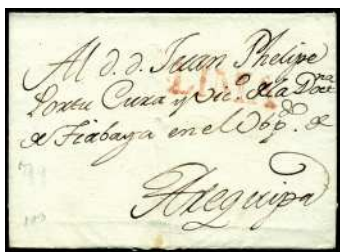 Al d. d. Juan Phelipe
LIMA
Portu Cura y Vic.º de la Doct.na
de Tiabaya en el Obp.do de
Arequipa